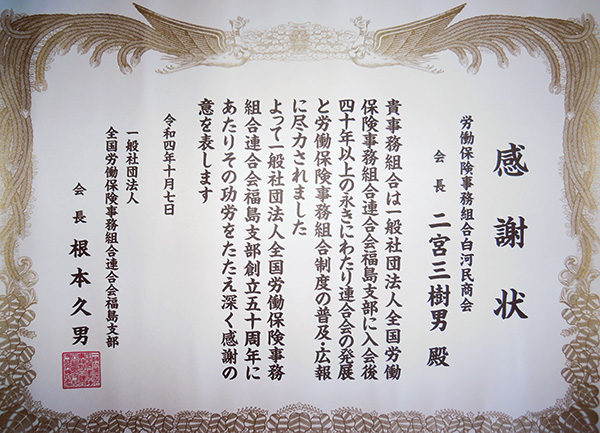 感謝状
労働保険事務組合白河民商会
会長 二宮三樹男 殿
貴事務組合は一般社団法人全国労働
保険事務組合連合会福島支部に入会後
四十年以上の永きにわたり連合会の発展
と労働保険事務組合制度の普及・広報
に尽力されました
よって一般社団法人全国労働保険事務
組合連合会福島支部創立五十周年に
あたりその功労をたたえ深く感謝の
意を表します
令和四年十月七日
一般社団法人
全国労働保険事務組合連合会福島支部
会長 根本久男